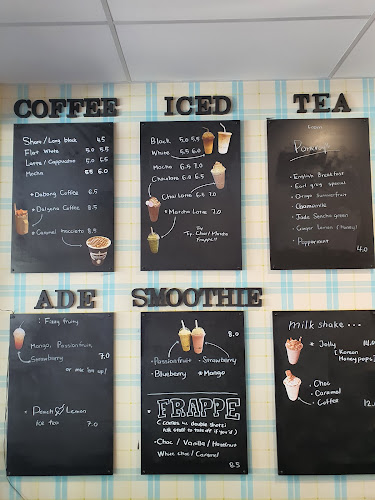 COFFEE
Short / Long black 4.5
Flat White 5.0 5.5
Latte / Cappuccino 5.0 5.5
Mocha 5.5 6.0
• Dabang Coffee 6.5
• Dalgona Coffee 8.5
• Caramel macciato 8.5
ICED
Black 5.0 5.5
White 5.5 6.0
Mocha 6.5 7.0
Chocolate 6.5 7.0
Chai Latte 6.5 7.0
• Matcha Latte 7.0
Try Chai / Matcha
Frappe!!
TEA
• English Breakfast
• Earl grey special
• Chamomile
• Jade Sencha Green
• Ginger Lemon (Honey)
• Peppermint
4.0
ADE
: Fizzy fruity
Mango, Passionfruit
Strawberry 7.0
or mix 'em up!
• Peach & Lemon
Ice tea 7.0
SMOOTHIE
8.0
• Passionfruit • Strawberry
• Blueberry • Mango
• FRAPPE
( comes w. double shots:)
Ask staff to take off if you'd )
• Choc / Vanilla / Hazelnut
White choc / Caramel
8.5
milk shake ...
• Jolly 14.0
[ Korean
Honey pops ]
• Choc
• Caramel
• Coffee 12.0